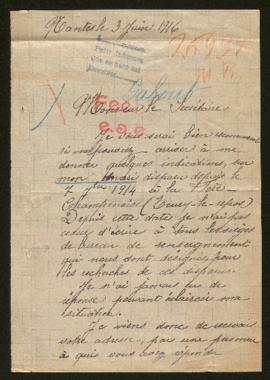 Nantes le 3 Juin 1916
Monsieur le Secrétaire
Je vous serai bien reconnaissante
si vous pouvez arriver à me
donner quelques indications, sur
mon Mari disparu depuis le
7 7bre 1914 à la Fère
Champenoise
Depuis cette date je n'ai pas
cessez d'écrire à tous les
bureau de renseignement
qui nous sont désignés pour
les recherches de ces disparus.
Je n'ai jamais eu de
réponse pouvant éclaircir ma
situation.
Je viens donc de recevoir
votre adresse, par une personne
à qui vous avez répondu